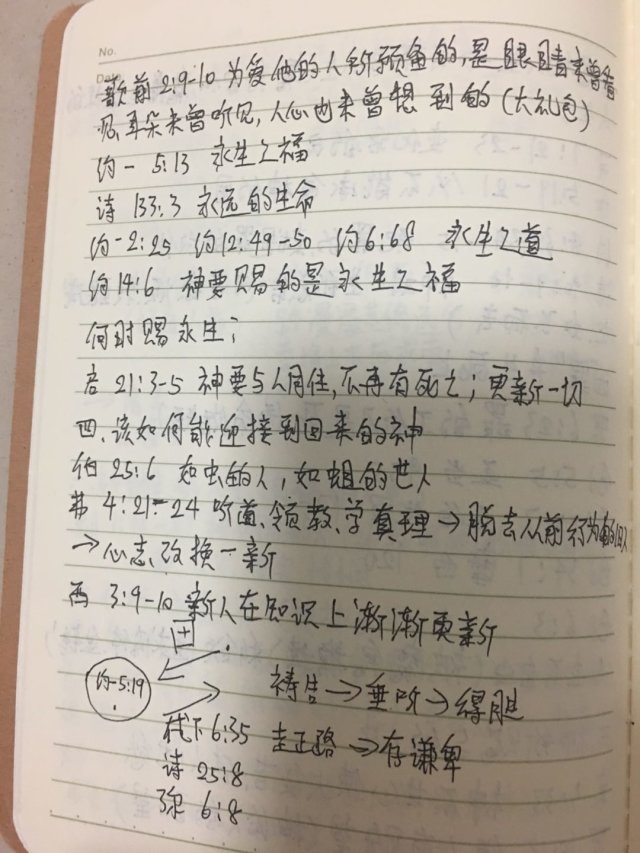 No.
Date
歌前 2:9-10 为爱他的人所预备的,是眼睛未曾看
见,耳朵未曾听见,人心也未曾想到的(大礼包)
约一 5:13 永生之福
诗 133:3 永远的生命
约一2:25 约12:49-50 约6:68 永生之道
约14:6 神要赐的是永生之福
何时赐永生;
启 21:3-5 神要与人同住,不再有死亡;更新一切
四、该如何能迎接到回来的神
伯 25:6 如虫的人,如蛆的世人
弗 4:21-24 听道、领教、学真理→脱去从前行为的旧人
→心志改换一新
西 3:9-10 新人在知识上渐渐更新
田
约一5:19
祷告→垂听→得胜
代下 6:35 走正路→存谦卑
诗 25:8
弥 6:8